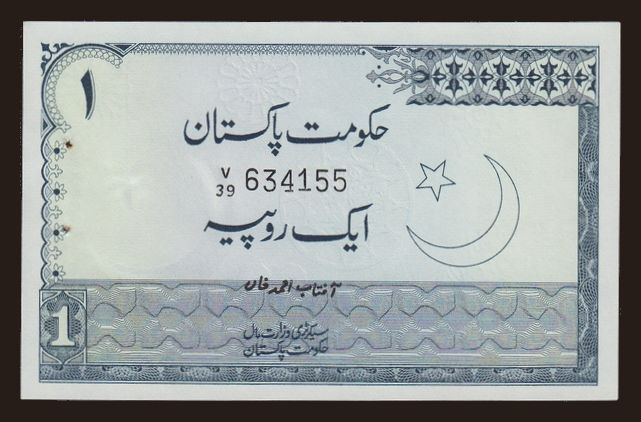 ۱
حکومت پاکستان
V/39 634155
ایک روپیہ
آفتاب احمد خان
سیکرٹری وزارت مال
حکومت پاکستان
1